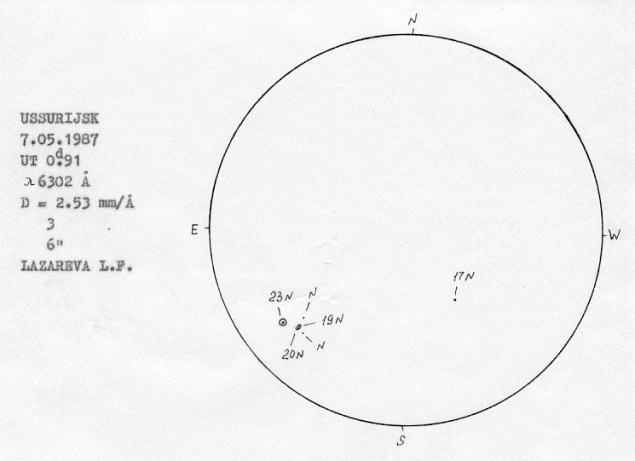 N
USSURIJSK
7.05.1987
UT 0ᵈ.91
λ 6302 Å
D = 2.53 mm/Å
3
6"
LAZAREVA L.F.
E
W
17N
23N N
19N
20N N
S